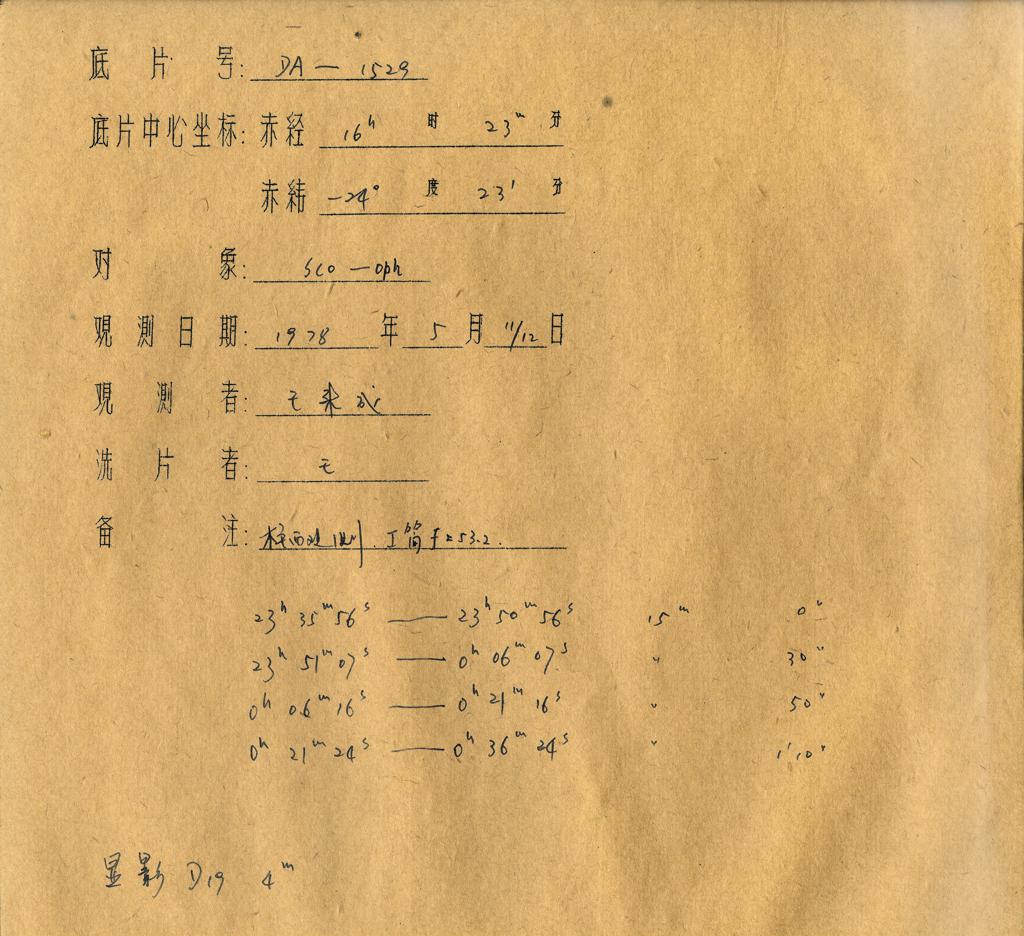 底片号: DA — 1529
底片中心坐标: 赤经 16ʰ 时 23ᵐ 分
赤纬 -24° 度 23′ 分
对象: Sco — Oph
观测日期: 1978 年 5 月 11/12 日
观测者: 王来成
洗片者: 王
备注: 测. 工筒 f=53.2.
23ʰ 35ᵐ 56ˢ —— 23ʰ 50ᵐ 56ˢ 15ᵐ 0″
23ʰ 51ᵐ 07ˢ —— 0ʰ 06ᵐ 07ˢ 〃 30″
0ʰ 06ᵐ 16ˢ —— 0ʰ 21ᵐ 16ˢ 〃 50″
0ʰ 21ᵐ 24ˢ —— 0ʰ 36ᵐ 24ˢ 〃 1′10″
显影 D19 4ᵐ